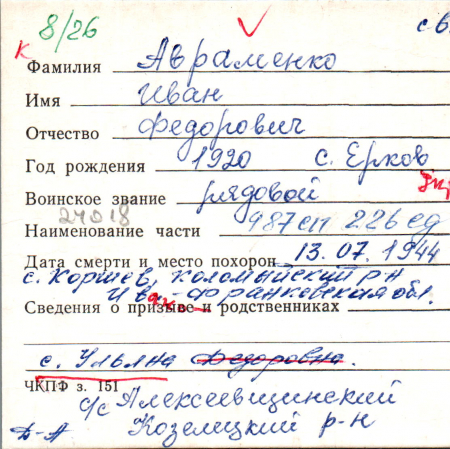 8/26
с в
к
Фамилия Авраменко
Имя Иван
Отчество Федорович
Год рождения 1920 с. Ерков
Воинское звание рядовой
24018
Наименование части 987 сп 226 сд
Дата смерти и место похорон 13.07.1944
с. Коршев, Коломыйский р-н
Ивано-Франковская обл.
Сведения о призыве и родственниках
с. Ульяна Федоровна.
ЧКПФ з. 151
с/с Алексеевщинский
Д-А Козелецкий р-н